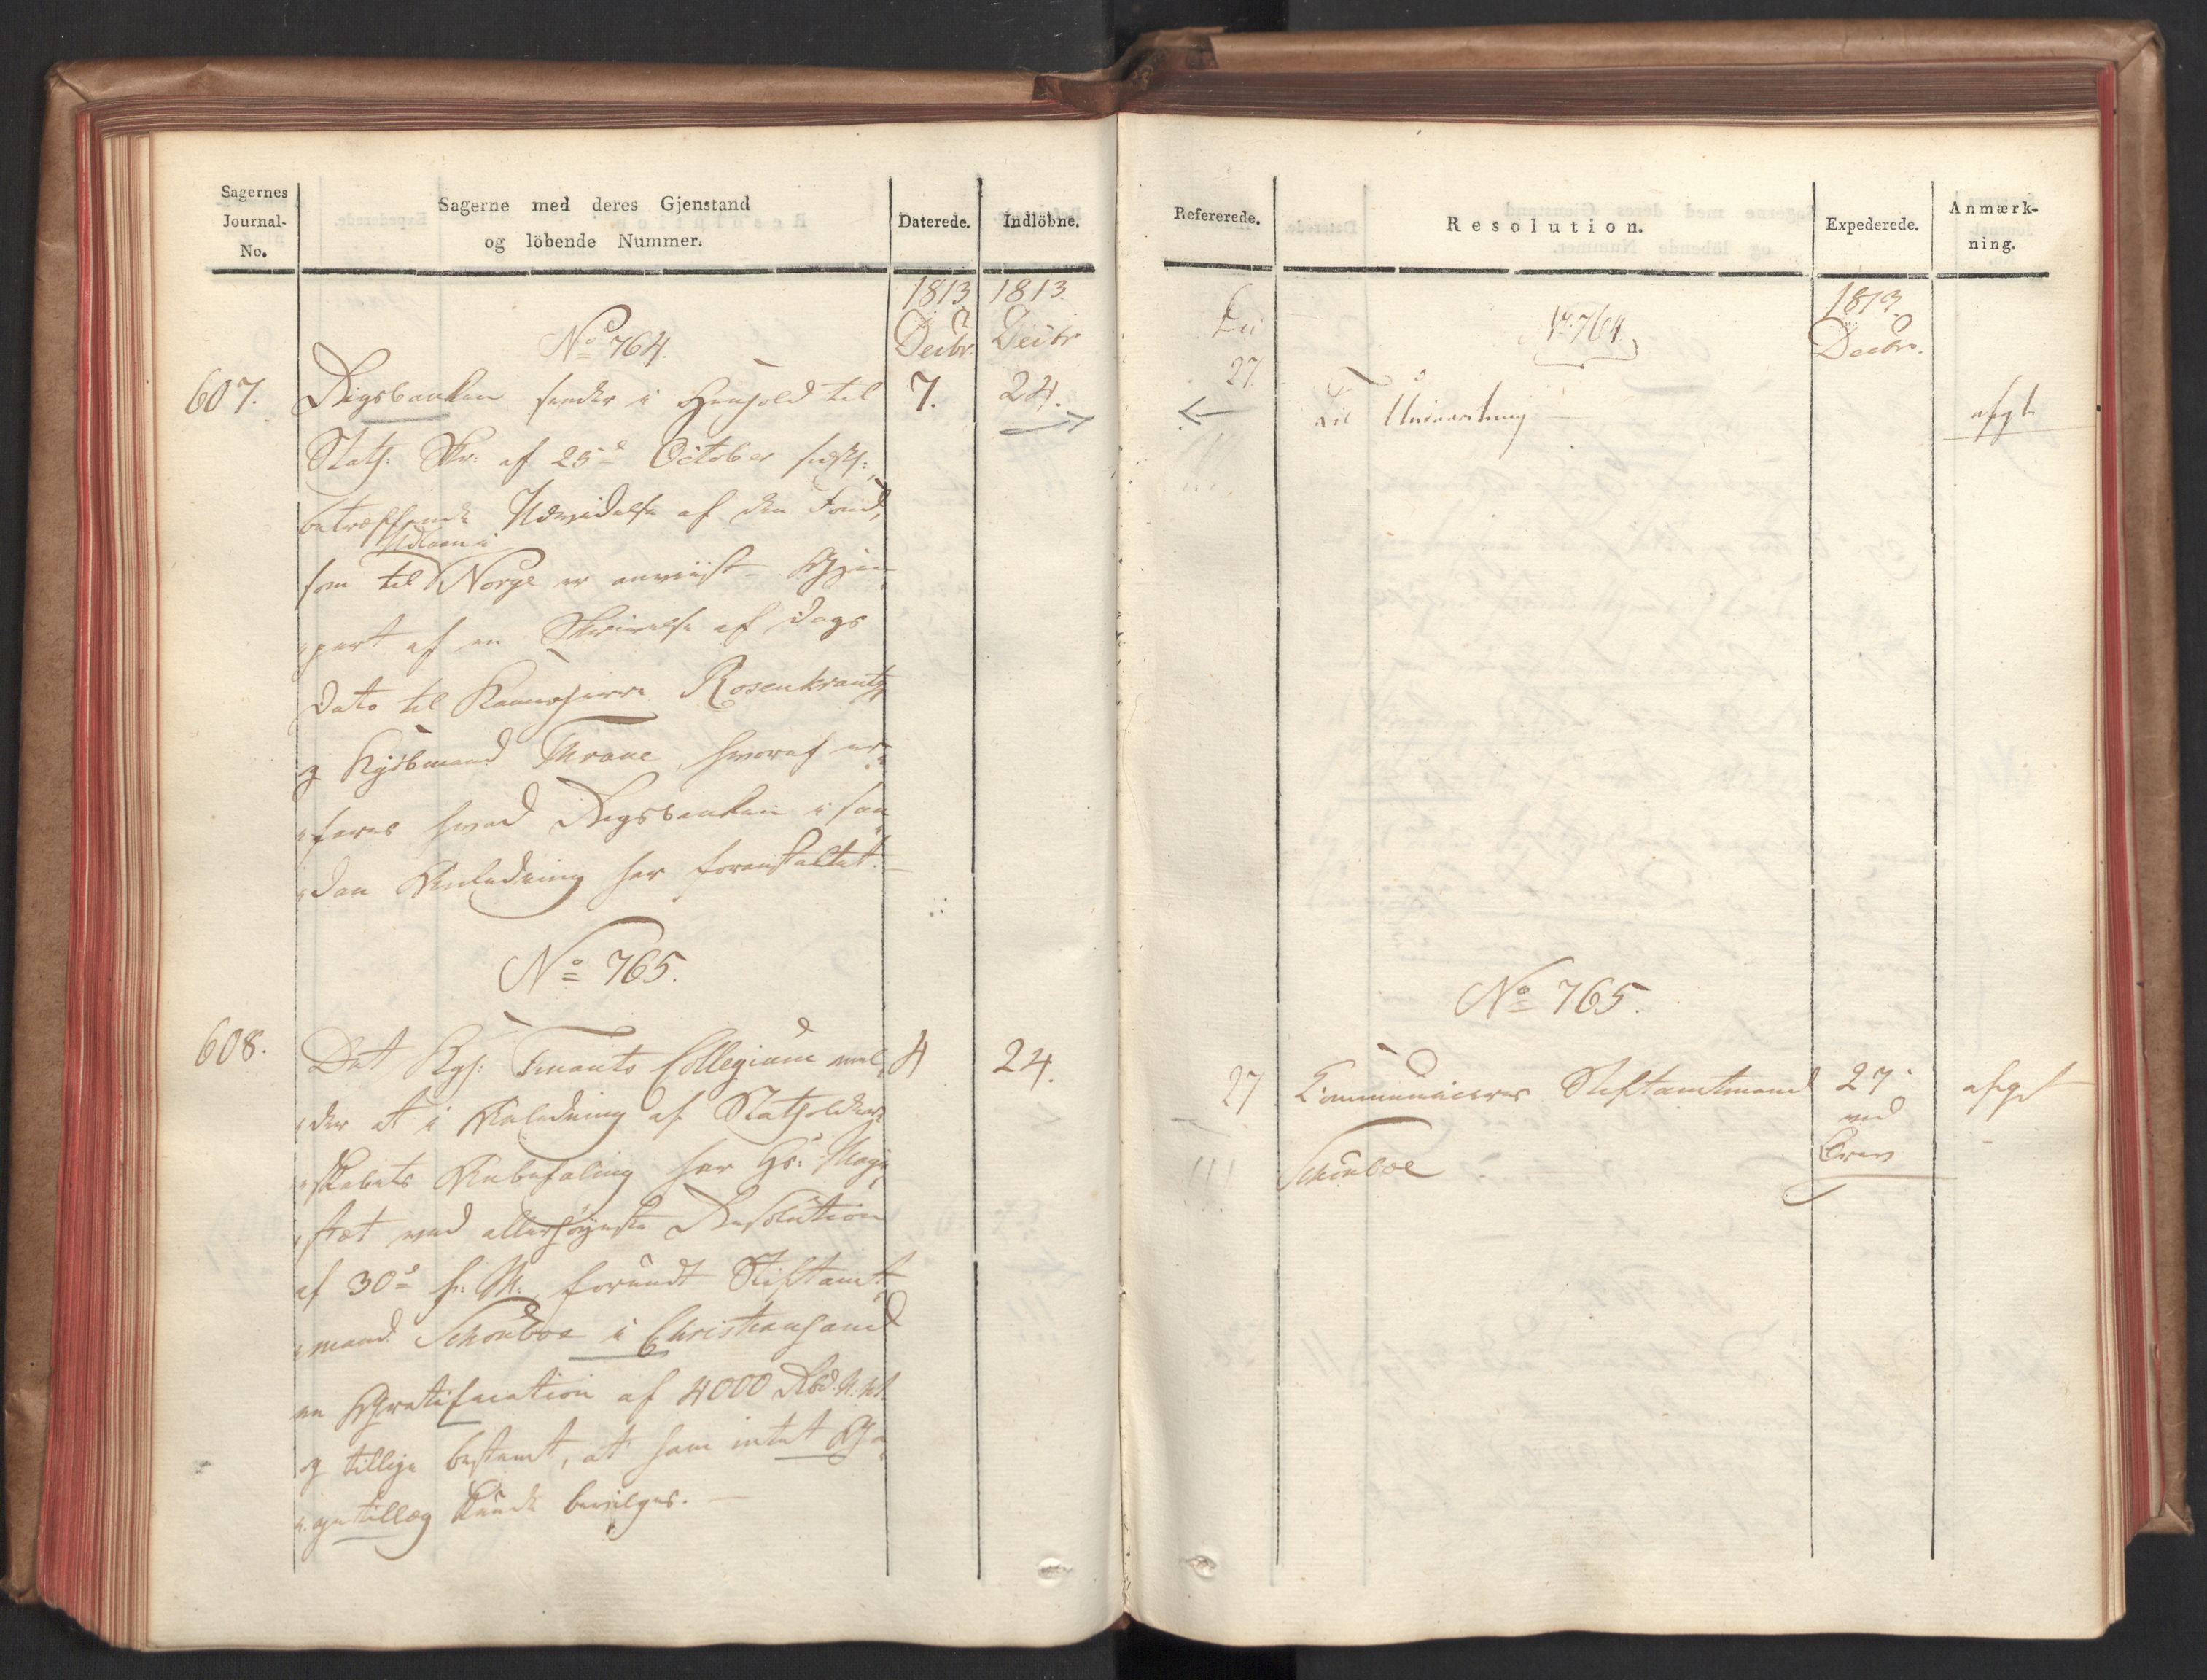 Sagernes
Journal-
No.
Sagerne med deres Gjenstand
og löbende Nummer.
Daterede.
Indlöbne.
1813
1813.
Decbr.
Decbr
No 764.
607.
Rigsbanken sender i Henhold til
7.
24.
Stath: Skr: af 25de October sidstl:
betræffende Udvidelse af den Fond,
Udlaan i
som til Norge er anviist – Gjen-
part af en Skrivelse af Dags
Dato til Kammerherre Rosenkrantz
og Kjöbmand Thrane, hvoraf er-
fares hvad Rigsbanken i saa-
dan Anledning har foranstaltet. –
No 765.
608.
Det Kgl: Finants Collegium mel-
4
24.
der at i Anledning af Statholder-
skabets Anbefaling har Hs: Maje-
stæt ved allerhöyeste Resolution
af 30te f: M: forundt Stiftamt-
mand Schouboe i Christiansand
en Gratification af 4000 Rbd. N. V.
og tillige bestemt, at ham intet Ga-
getillæg kunde bevilges. –
Refererede.
Resolution.
Expederede.
Anmærk-
ning.
1813.
Decbr.
No 764
27.
Til
afgt
No 765.
27
Communiceres Stiftamtmand
27
afgt
Schouboe
ved
Brev